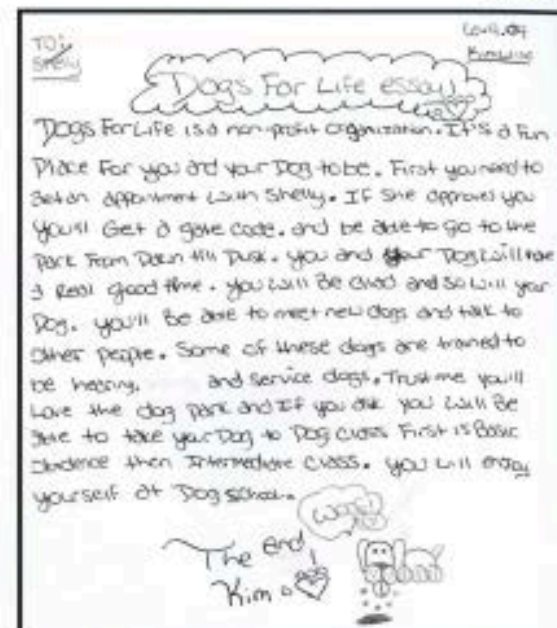 TO:
Shelly
Dogs For Life essay
Dogs For Life is a non-profit organization. It's a Fun
Place For you and your Dog to be. First you need to
Set an appointment with Shelly. If She approves you
you'll Get a gate code. and be able to go to the
Park From Dawn till Dusk. you and your Dog will have
a Real good time. you will Be Glad and so will your
Dog. you'll Be able to meet new dogs and talk to
other people. Some of these dogs are trained to
be hearing. and service dogs. Trust me you'll
Love the dog park and If you ask you will Be
able to take your Dog to Dog class First is Basic
then Intermediate class. you will enjoy
yourself at Dog school.
The end,
Kim